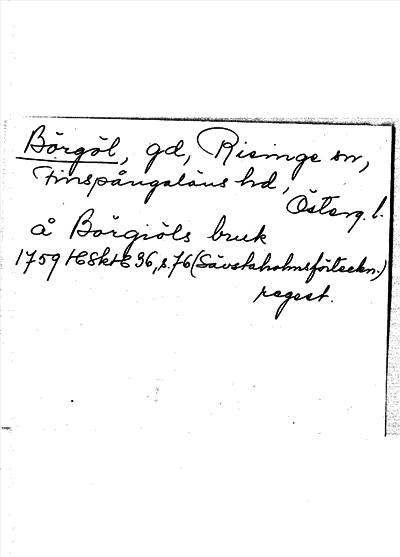 Börgöl, gd, Risinge sn,
Finspångaläns hd,
Österg. l.
å Börgiöls bruk
1759 HSkH 36, s. 76 (Sävstaholmsförteckn.)
regest.